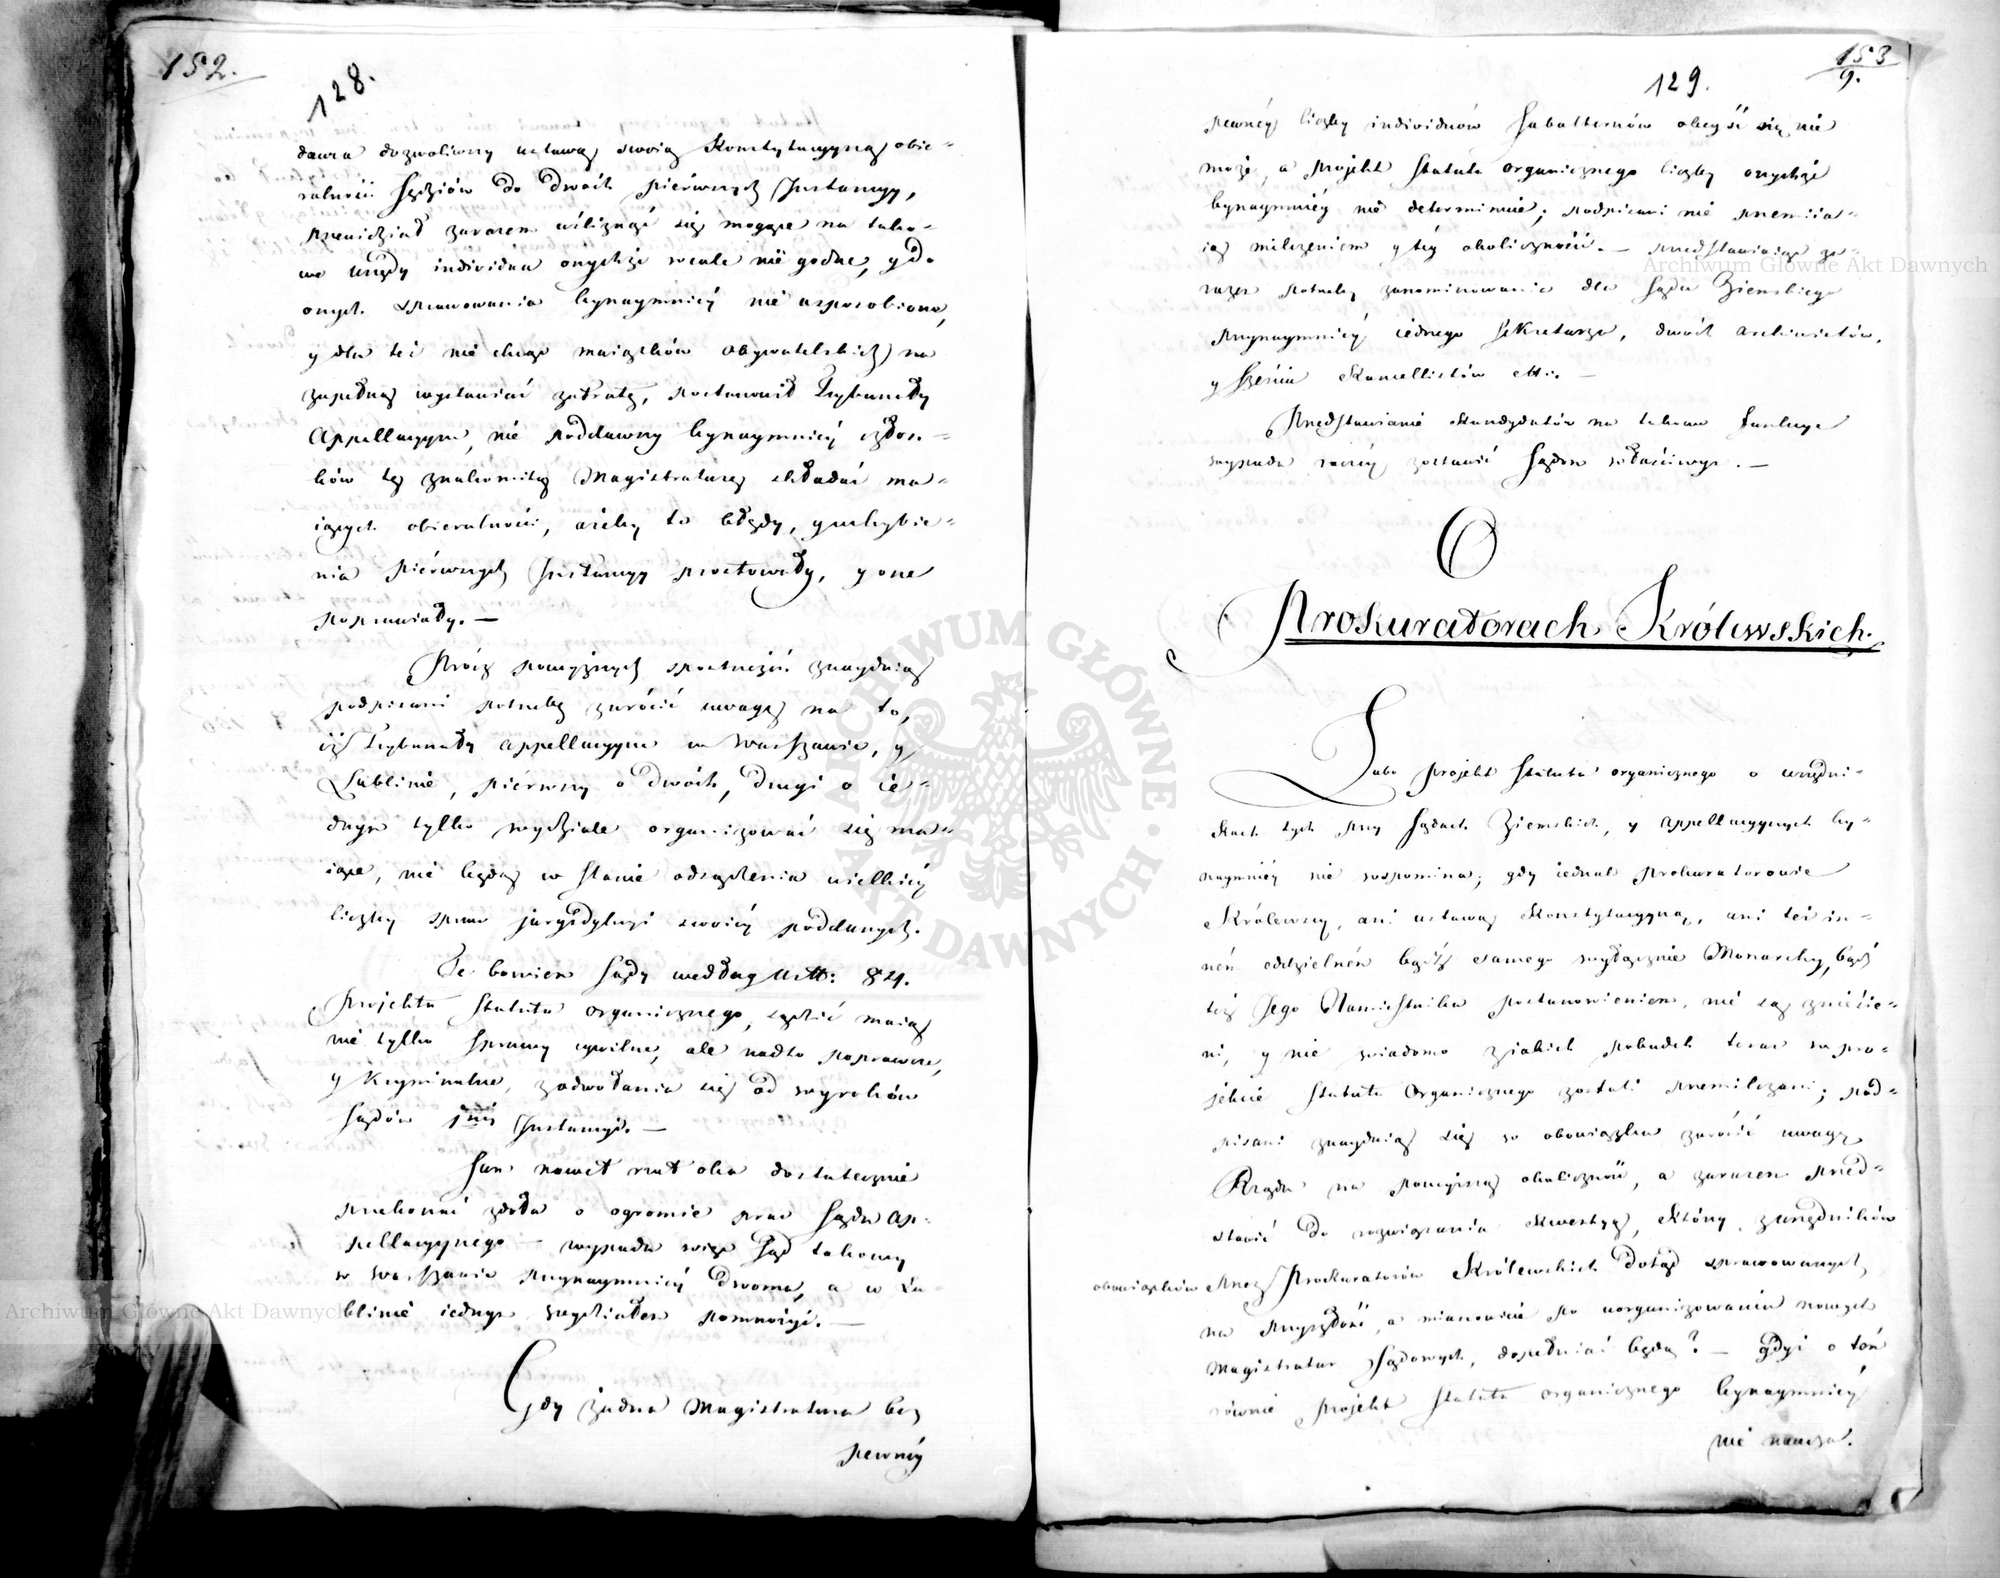 152.
128.
dawca dozwoliwszy ustawą swoią Konstytucyyną obie-
ralności Sędziów do dwóch pierwszych Instancyy,
przewidział zarazem wśliznąć się mogące na tako-
we urzędy individua onychże wcale nie godne, y do
onych sprawowania bynaymniéy nie usposobione,
y dla téj nie chcąc maiątków obywatelskich na
zupełną wystawiać zatratę, postanowił Trybunały
Appellacyyne, nie poddawszy bynaymniéy człon-
ków tę znakomitą Magistraturę składać ma-
iących obieralności, ażeby to błędy, y uchybie-
nia pierwszych Instancyy prostowały, y one
poprawiały. —
Prócz powyższych spostrzeżeń znayduią
podpisani potrzebę zwrócić uwagę na to,
iż Trybunały Appellacyyne w Warszawie, y
Lublinie, pierwszy o dwóch, drugi o ie-
dnym tylko wydziale organizować się ma-
iące, nie będą w stanie odsądzenia wielkiéy
liczby spraw jurysdykcyi swoiéy poddanych.
Te bowiem Sądy według Artt: 84.
Projektu Statutu organicznego, sądzić maią
nie tylko sprawy cywilne, ale nadto poprawcze,
y kryminalne, z odwołania się od wyroków
Sądów 1széj Instancyi. —
Sam nawet rzut oka dostatecznie
przekonać zdoła o ogromie prac Sądu Ap-
pellacyynego — wypada więc Sąd takowy
w Warszawie przynaymniéy dwoma, a w Lu-
blinie iednym wydziałem pomnożyć. —
Gdy żadna Magistratura bez
pewnéy
153
9.
129.
pewnéy liczby individuów Subalternów obeyść się nie
może, a projekt Statutu organicznego liczby onychże
bynaymniéy nie determinuie; podpisani nie przemiia-
ią milczeniem y téy okoliczności. — przedstawiaiąc za-
razem potrzebę zanominowania dla Sądu Ziemskiego
przynaymniéy iednego Sekretarza, dwóch archiwistów,
y sześciu Kancellistów etc. —
Przedstawianie kandydatów na takowe funkcye
wypada raczéy zostawić Sądom właściwym. —
O
Prokuratorach Królewskich.
Lubo projekt Statutu organicznego o urzędni-
kach tych przy Sądach Ziemskich, y appellacyynych by-
naymniéy nie wspomina; gdy iednak Prokuratorowie
Królewscy, ani ustawą Konstytucyyną, ani też in-
ném oddzielném bądź samego wyłącznie Monarchy, bądź
też Jego Namiestnika postanowieniem, nie są zniesie-
ni, y nie wiadomo z iakich pobudek teraz w pro-
jekcie Statutu Organicznego zostali przemilczani; pod-
pisani znayduią się w obowiązku zwrócić uwagę
Rządu na powyższą okoliczność, a zarazem przed-
stawić do rozwiązania kwestyę, który z urzędników
obowiązków przez Prokuratorów Królewskich dotąd sprawowanych,
na przyszłość, a mianowicie po uorganizowaniu nowych
Magistratur Sądowych, dopełniać będą? — gdyż o tém
równie projekt Statutu organicznego bynaymniéy
nie naucza.